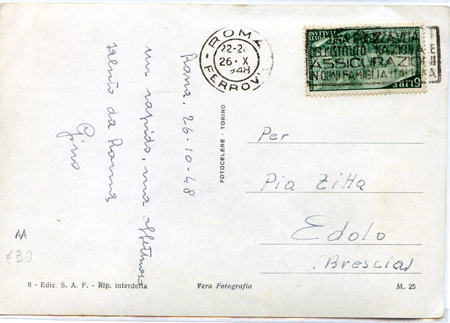 ROMA
FERROVIA
22-2
26·X
1948
ISTITUTO NAZIONALE
ASSICURAZI
IN OGNI FAMIGLIA
POSTE ITALIANE
LIRE 6
Roma, 26-10-48
un rapido, ma affettuoso
saluto da Roma
Gino
FOTOCELERE - TORINO
Per
Pia Zitta
Edolo
(Brescia)
AA
€30
8 - Ediz. S. A. F. - Rip. interdetta
Vera Fotografia
M. 25